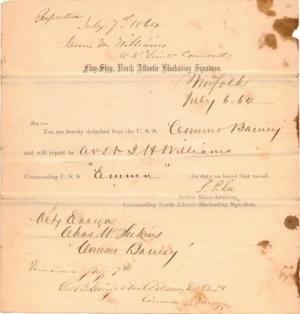 Reported
July 7th 1864
Williams
Flag-Ship, North Atlantic Blockading Squadron,
Norfolk
July 6. 64
Sir:—
You are hereby detached from the U. S. S. Commo Barney
and will report to Williams
Commanding U. S. S. "Emma" for duty on board that vessel.
S. P. Lee
Acting Rear-Admiral,
Commanding North Atlantic Blockading Squadron.
Actg Ensign
Chas W.
"Commo Barney"